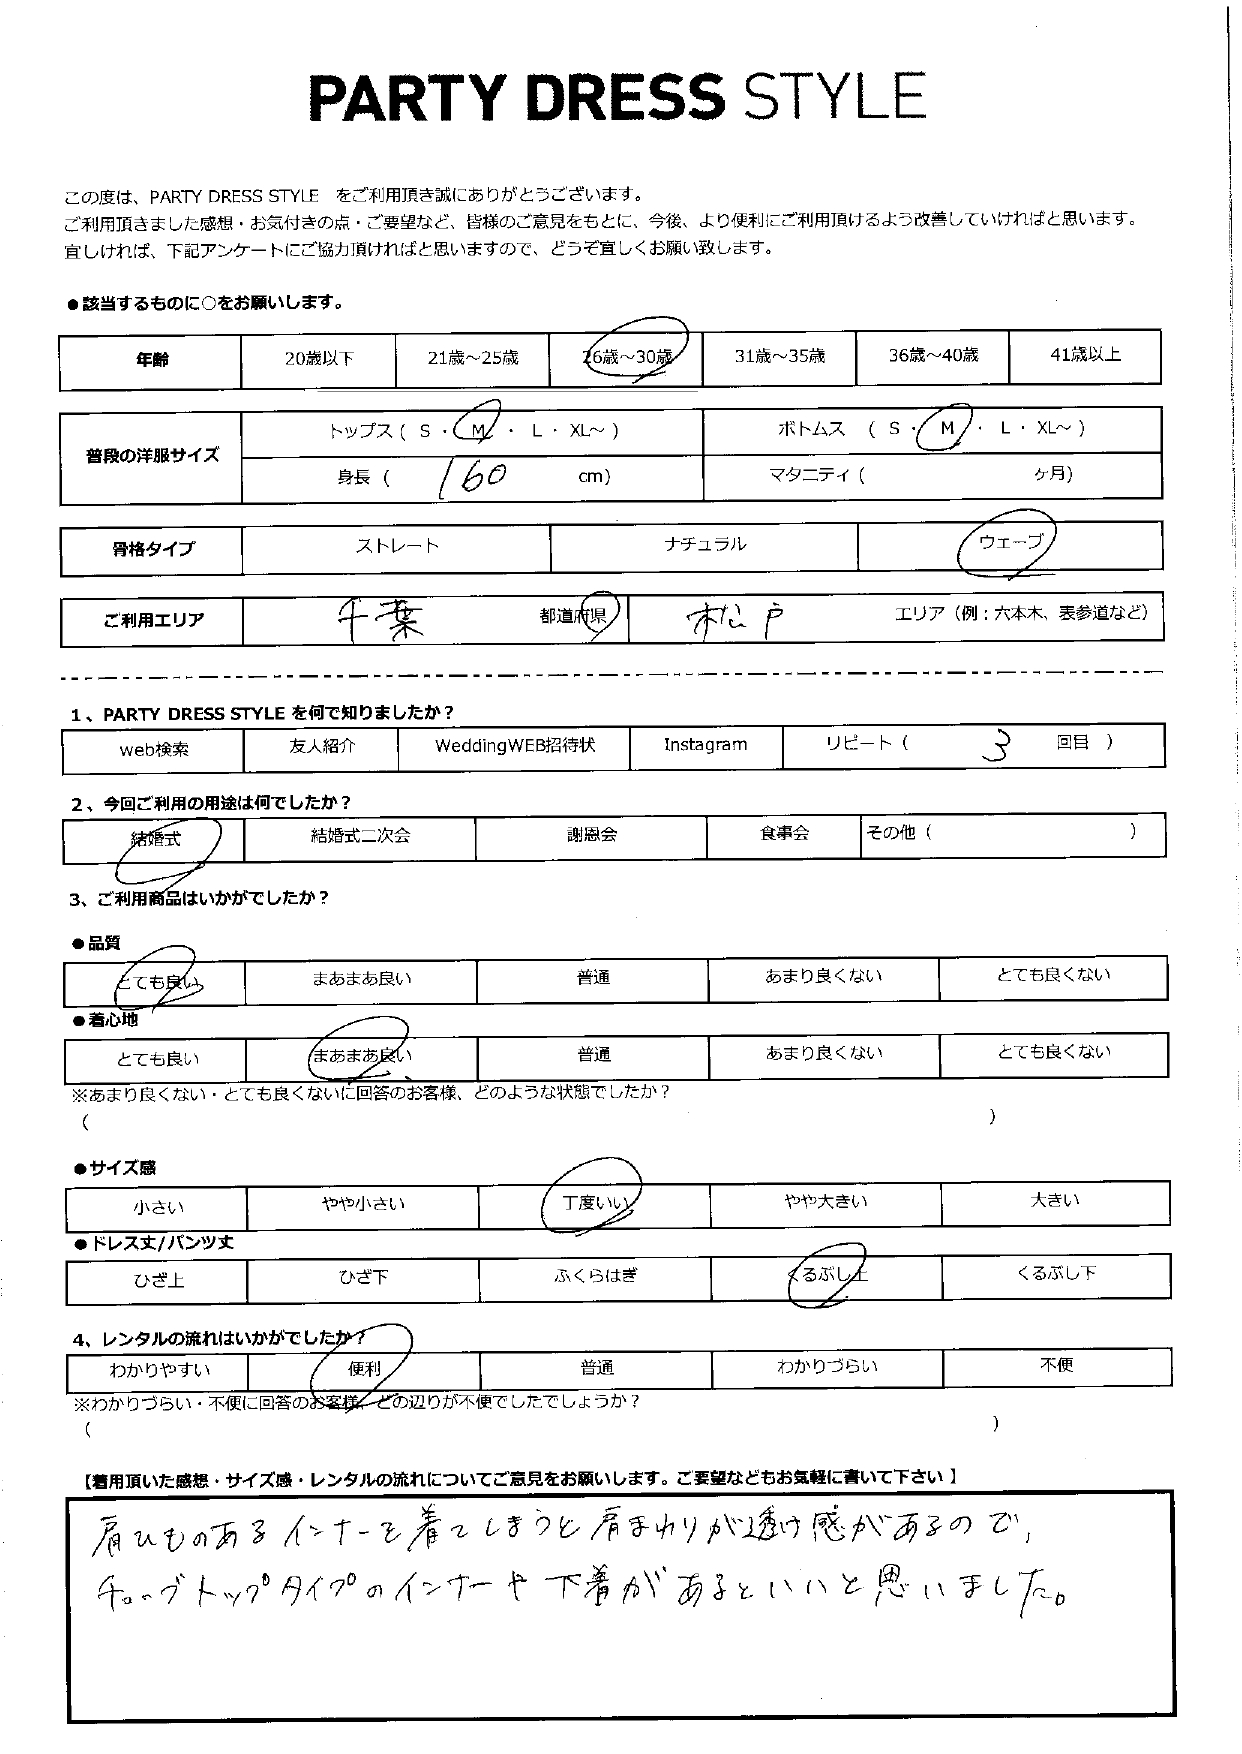 PARTY DRESS STYLE
この度は、PARTY DRESS STYLE をご利用頂き誠にありがとうございます。
ご利用頂きました感想・お気付きの点・ご要望など、皆様のご意見をもとに、今後、より便利にご利用頂けるよう改善していければと思います。
宜しければ、下記アンケートにご協力頂ければと思いますので、どうぞ宜しくお願い致します。
●該当するものに○をお願いします。
年齢 20歳以下 21歳～25歳 26歳～30歳 31歳～35歳 36歳～40歳 41歳以上
普段の洋服サイズ トップス ( S ・ M ・ L ・ XL～ ) ボトムス ( S ・ M ・ L ・ XL～ )
身長 ( 160 cm) マタニティ ( ヶ月)
骨格タイプ ストレート ナチュラル ウェーブ
ご利用エリア 千葉 都道府県 松戸 エリア（例：六本木、表参道など）
1、PARTY DRESS STYLE を何で知りましたか？
web検索 友人紹介 WeddingWEB招待状 Instagram リピート ( 3 回目 )
2、今回ご利用の用途は何でしたか？
結婚式 結婚式二次会 謝恩会 食事会 その他 ( )
3、ご利用商品はいかがでしたか？
●品質
とても良い まあまあ良い 普通 あまり良くない とても良くない
●着心地
とても良い まあまあ良い 普通 あまり良くない とても良くない
※あまり良くない・とても良くないに回答のお客様、どのような状態でしたか？
( )
●サイズ感
小さい やや小さい 丁度いい やや大きい 大きい
●ドレス丈/パンツ丈
ひざ上 ひざ下 ふくらはぎ くるぶし上 くるぶし下
4、レンタルの流れはいかがでしたか？
わかりやすい 便利 普通 わかりづらい 不便
※わかりづらい・不便に回答のお客様、どの辺りが不便でしたでしょうか？
( )
【着用頂いた感想・サイズ感・レンタルの流れについてご意見をお願いします。ご要望などもお気軽に書いて下さい 】
肩ひものあるインナーを着てしまうと肩まわりが透け感があるので、
チューブトップタイプのインナーや下着があるといいと思いました。